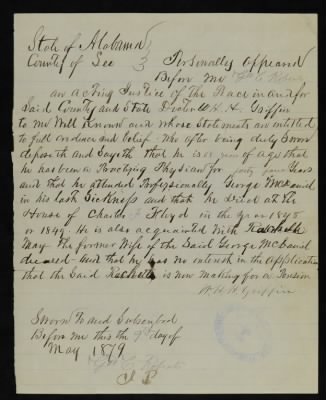 State of Alabama
County of Lee
Personally appeared
Before me
an acting Justice of the Peace in and for
Said County and State Doctor W H. H. Griffin
to me Well Known and whose Statements are intitled
to full credence and belief - Who after being duly Sworn
deposeth and Sayeth that he is years of Age that
he has been a Practicing Physician for forty four Years
and that he attended Professionally George McDaniel
in his last Sickness and that he Died at the
House of Charles Floyd in the year 1848
or 1849. He is also acquainted with
May the former Wife of the Said George McDaniel
deceased - and that he has no interest in the application
that the Said is now making for a Pension
W. H. H. Griffin
Sworn to and Subscribed
Before me this the 9th day of
May 1879
J P